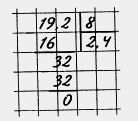 19,2 8
16 2,4
32
32
0